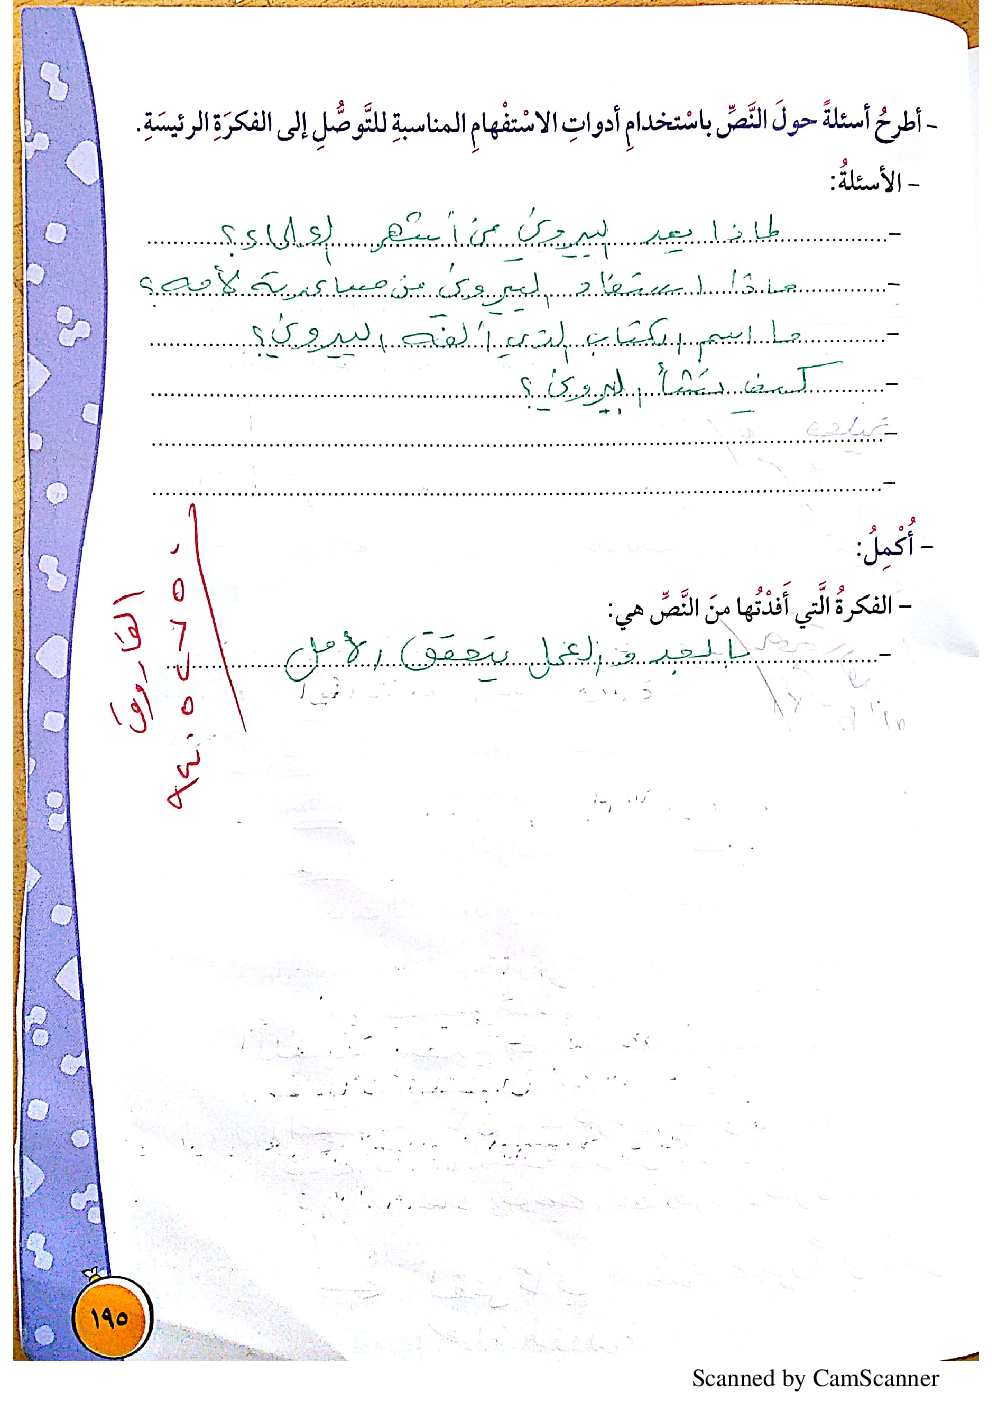 - أطرحُ أسئلةً حولَ النَّصِّ باسْتخدامِ أدواتِ الاسْتفْهامِ المناسبةِ للتَّوصُّلِ إلى الفكرَةِ الرئيسَةِ.
- الأسئلةُ:
- لماذا يعد البيروني من أشهر العلماء؟
- ماذا استفاد البيروني من مساعدته لأمه؟
- ما اسم الكتاب الذي ألفه البيروني؟
- كيف نشأ البيروني؟
-
-
- أُكْمِلُ:
- الفكرةُ الَّتي أَفدْتُها منَ النَّصِّ هي:
- بالجد و العمل يتحقق الأمل
١٩٥
Scanned by CamScanner